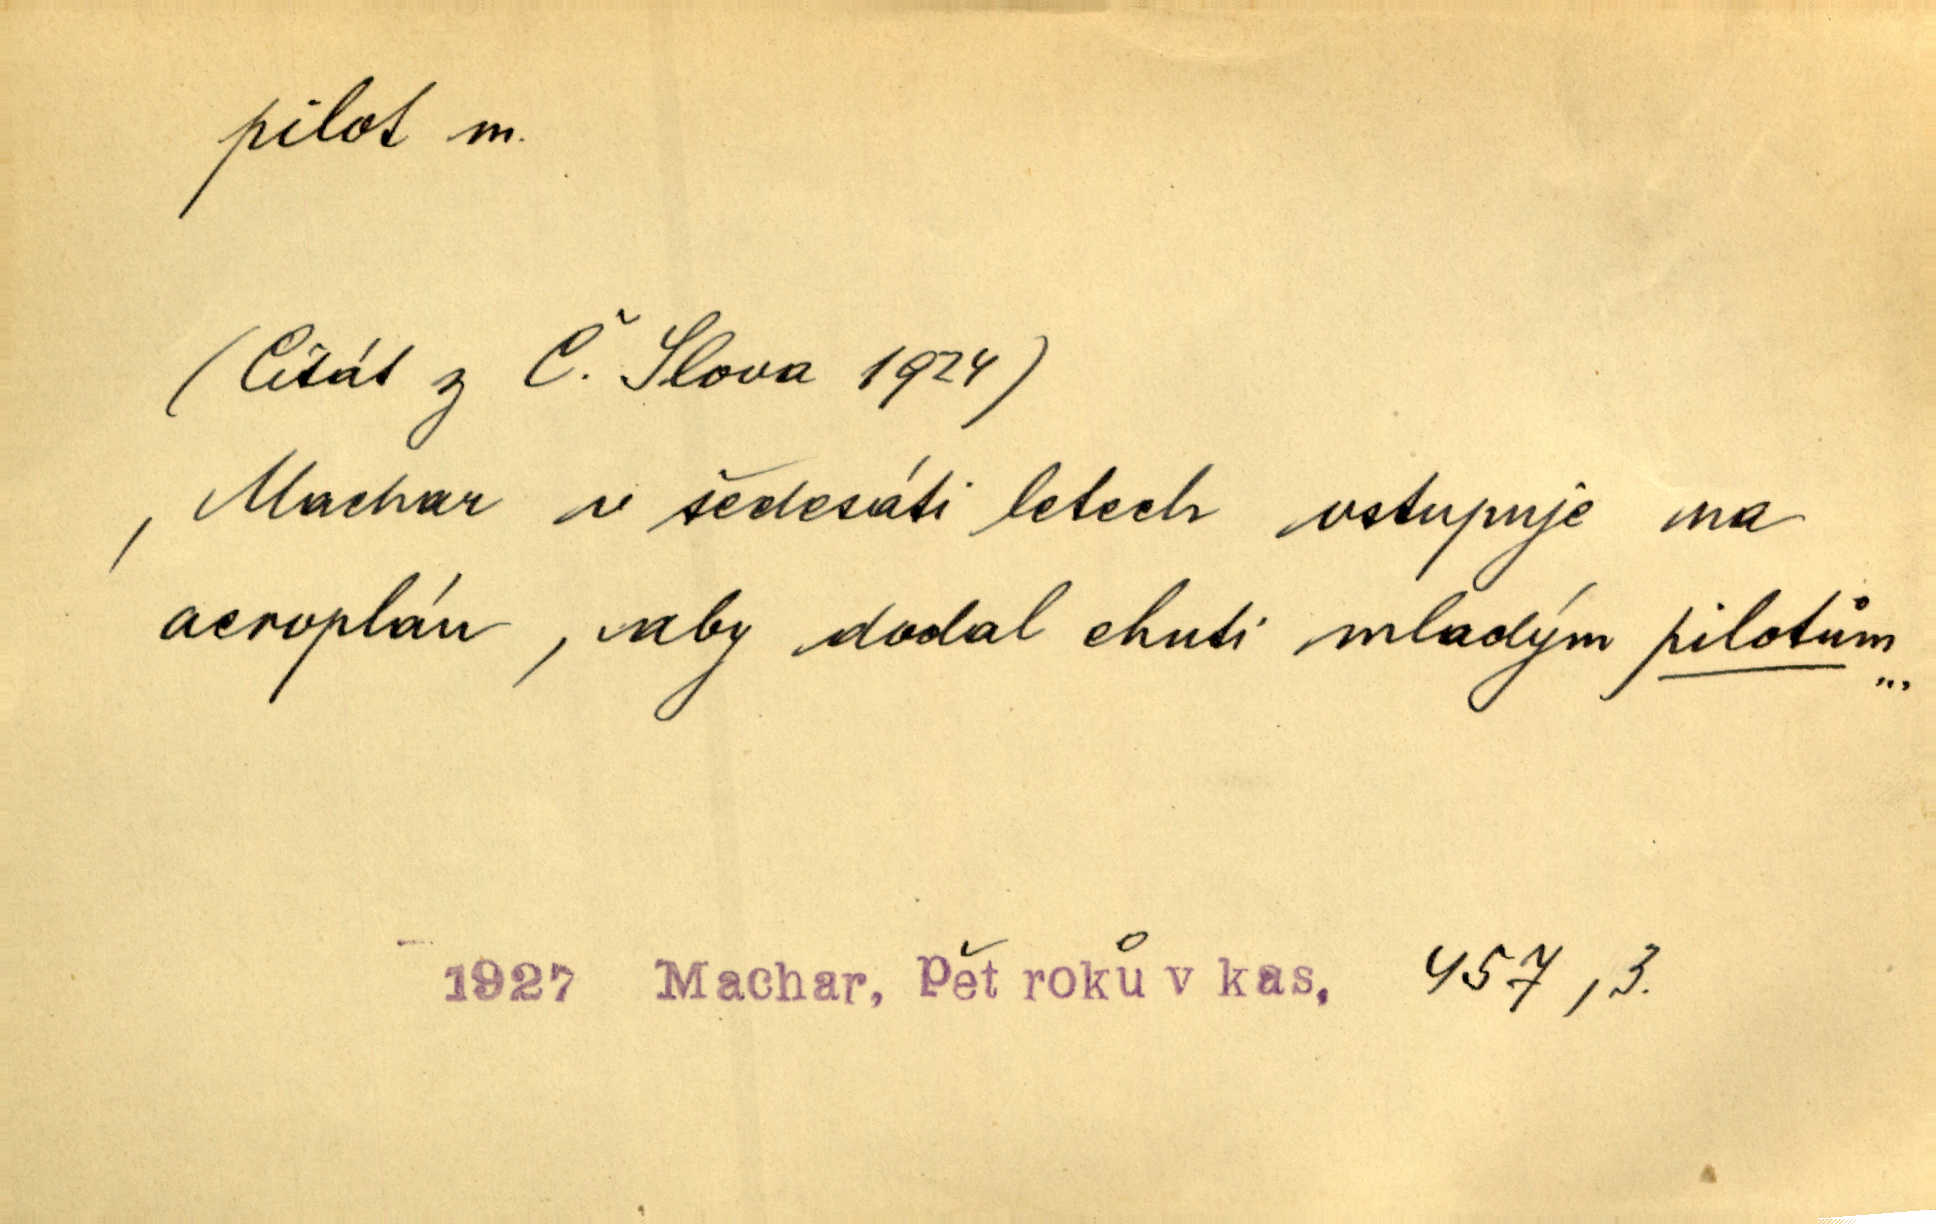 pilot m.
(Citát z Č. Slova 1924)
, Machar v šedesáti letech vstupuje na
aeroplán, aby dodal chuti mladým pilotům...
1927 Machar, Pět roků v kas. 457, 3.